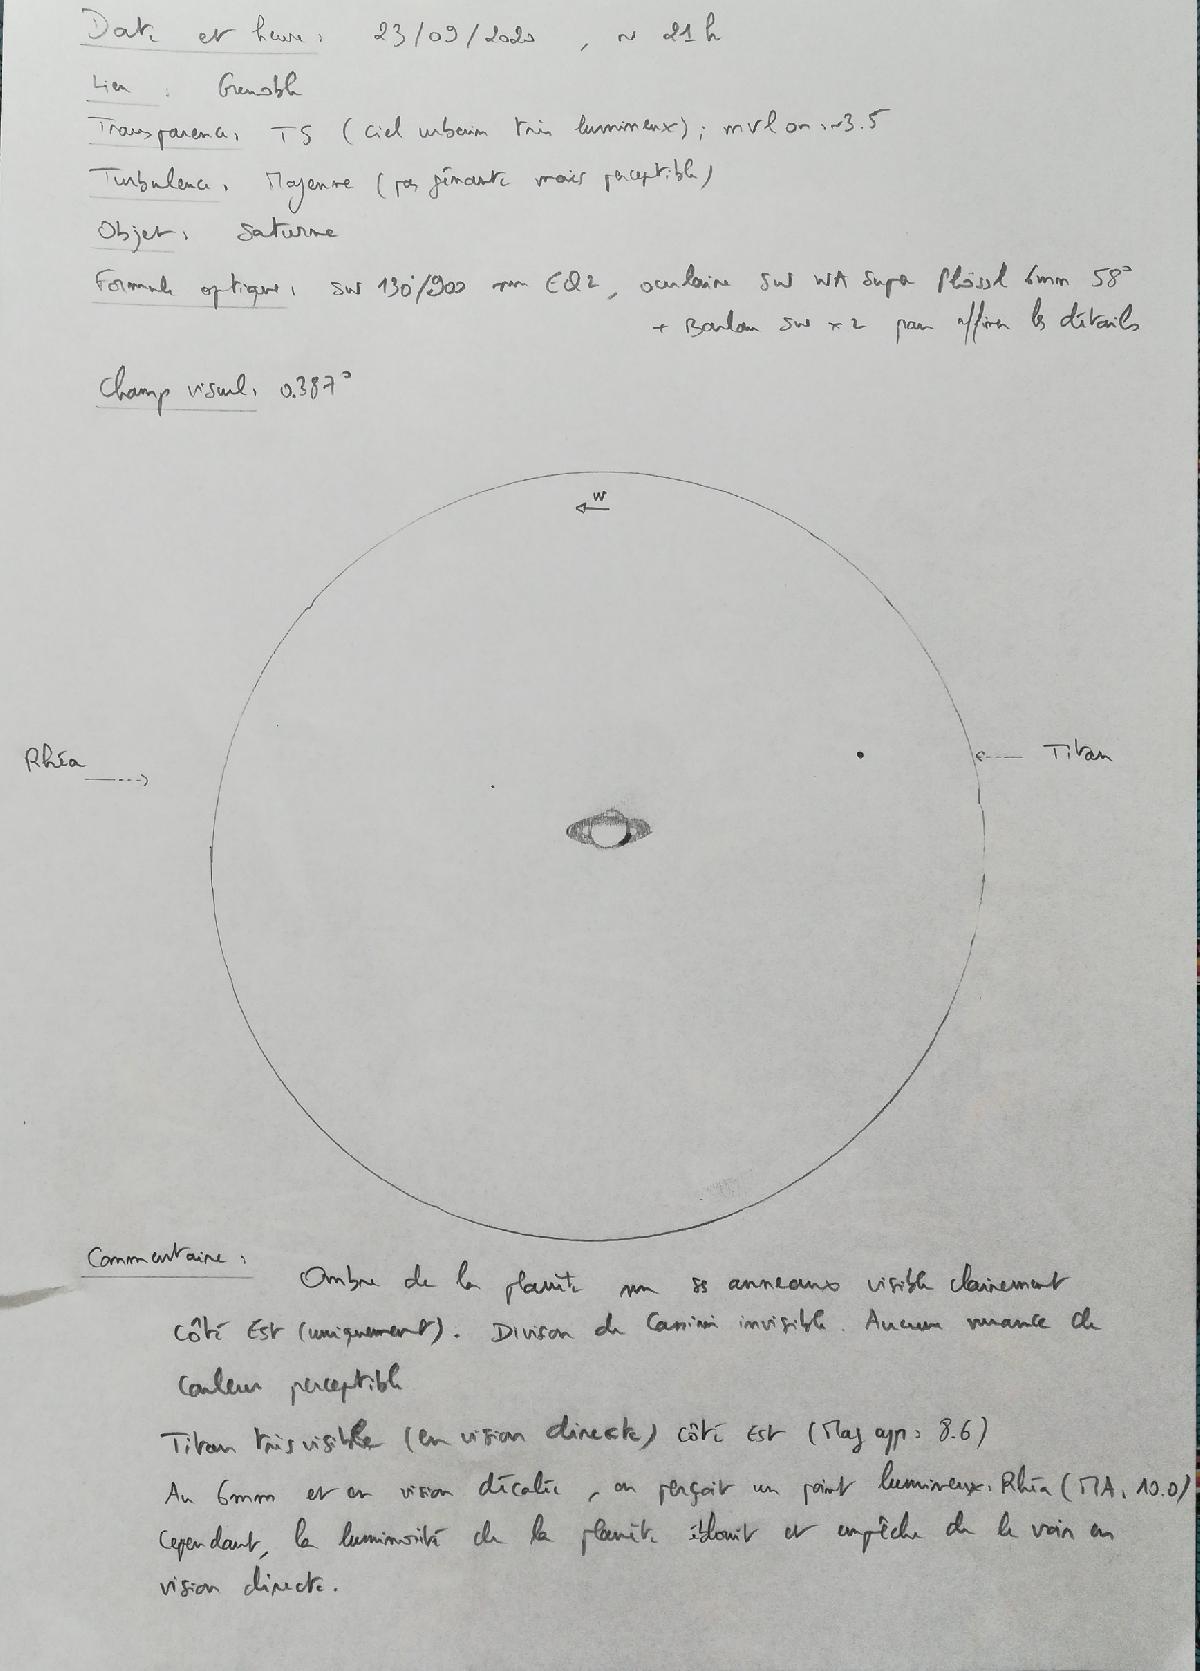 Date et heure : 23/09/2020 , ~ 21h
Lieu : Grenoble
Transparence : T5 (ciel urbain très lumineux) ; mvlon : ~3.5
Turbulence : Moyenne (pas gênante mais perceptible)
Objet : Saturne
Formule optique : SW 130/900 mm EQ2, oculaire SW WA Super Plössl 6mm 58°
+ Barlow SW x2 pour affiner les détails
Champ visuel : 0.387°
W
Rhéa
Titan
Commentaire :
Ombre de la planète sur ss anneaux visible clairement
côté Est (uniquement). Divison de Cassini invisible. Aucune nuance de
couleur perceptible
Titan très visible (en vision directe) côté Est (Mag app : 8.6)
Au 6mm et en vision décalée, on perçoit un point lumineux : Rhéa (MA : 10.0)
Cependant, la luminosité de la planète éblouit et empêche de le voir en
vision directe.